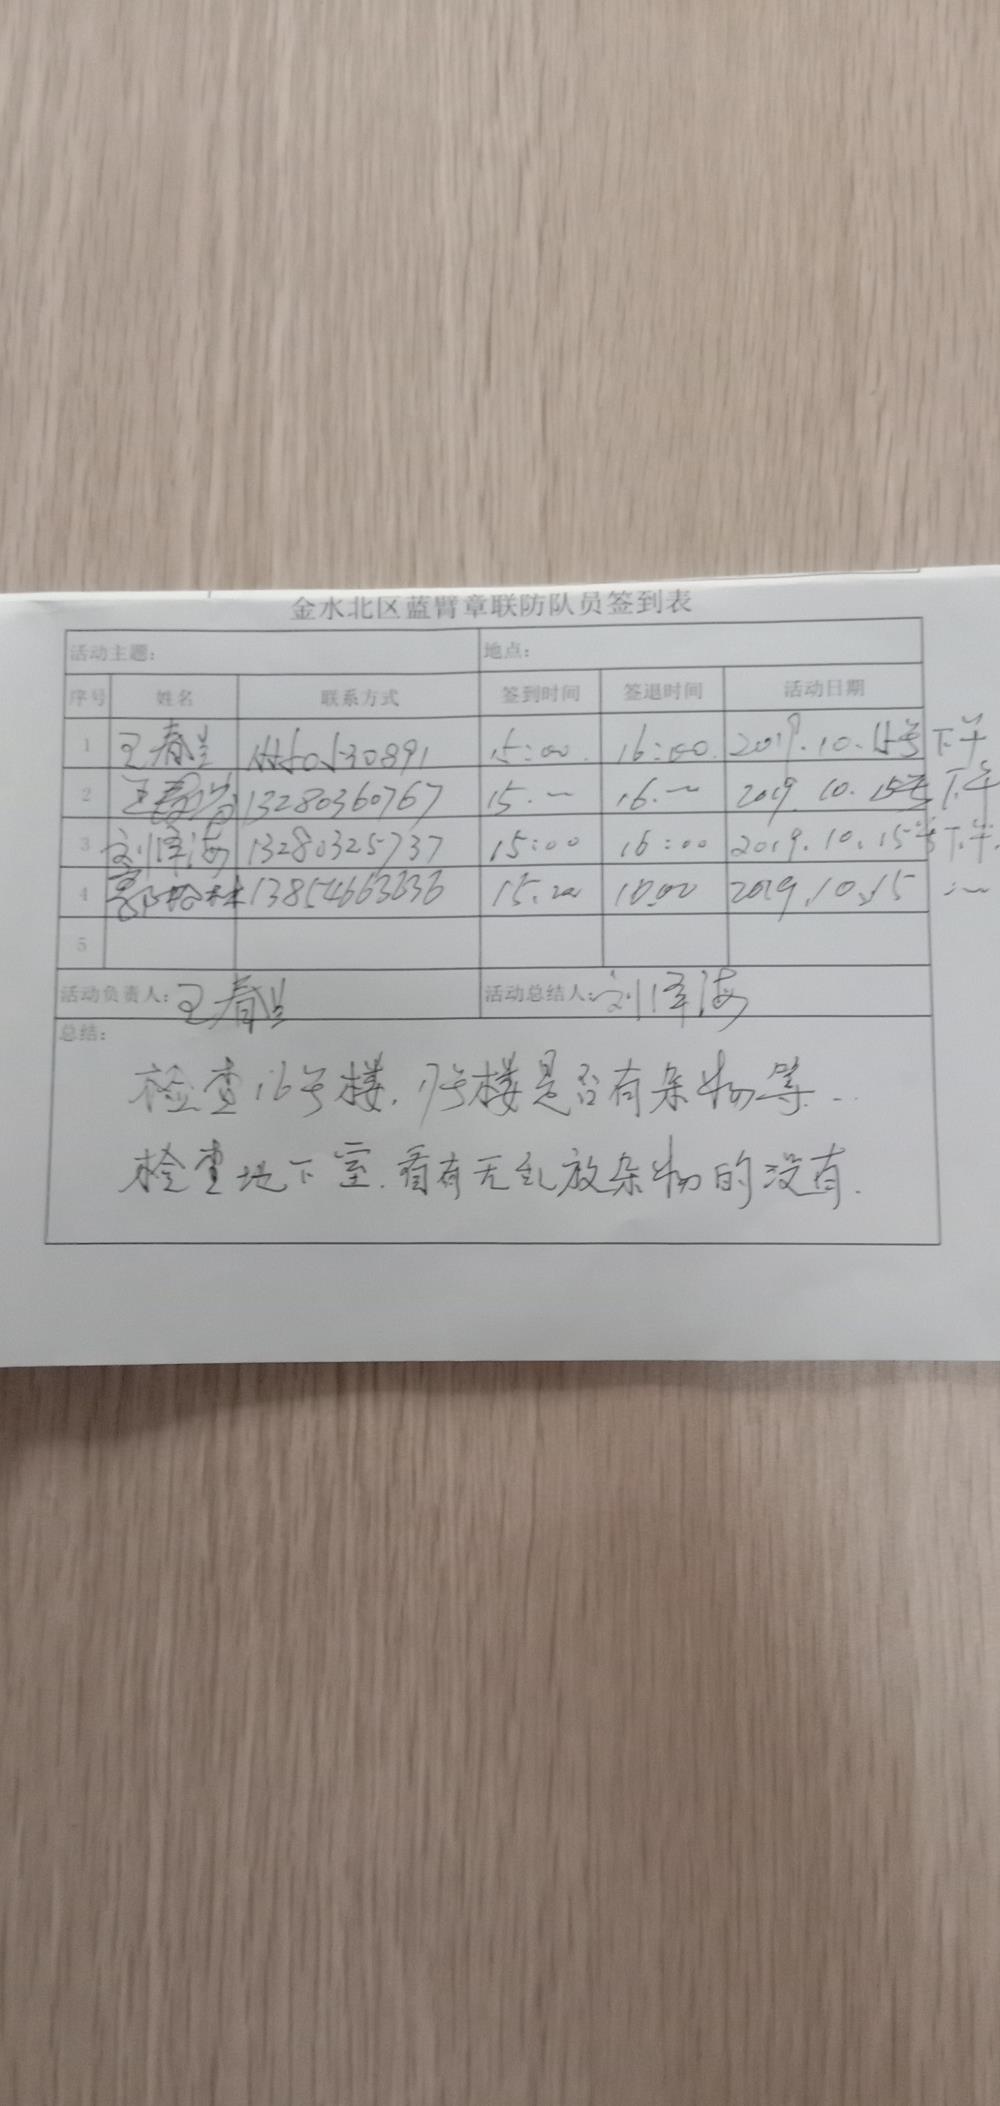 金水北区蓝臂章联防队员签到表
活动主题： 地点：
序号 姓名 联系方式 签到时间 签退时间 活动日期
1 王春兰 15:00 16:00 2019.10.15号下午
2 13280360767 15. 16. 2019.10.15号下午
3 刘泽海 13280325737 15:00 16:00 2019.10.15号下午
4 13854663636 15.00 10.00 2019.10.15
5
活动负责人：王春兰 活动总结人：刘泽海
总结：
检查16号楼.17号楼是否有杂物等...
检查地下室.看有无乱放杂物的没有.